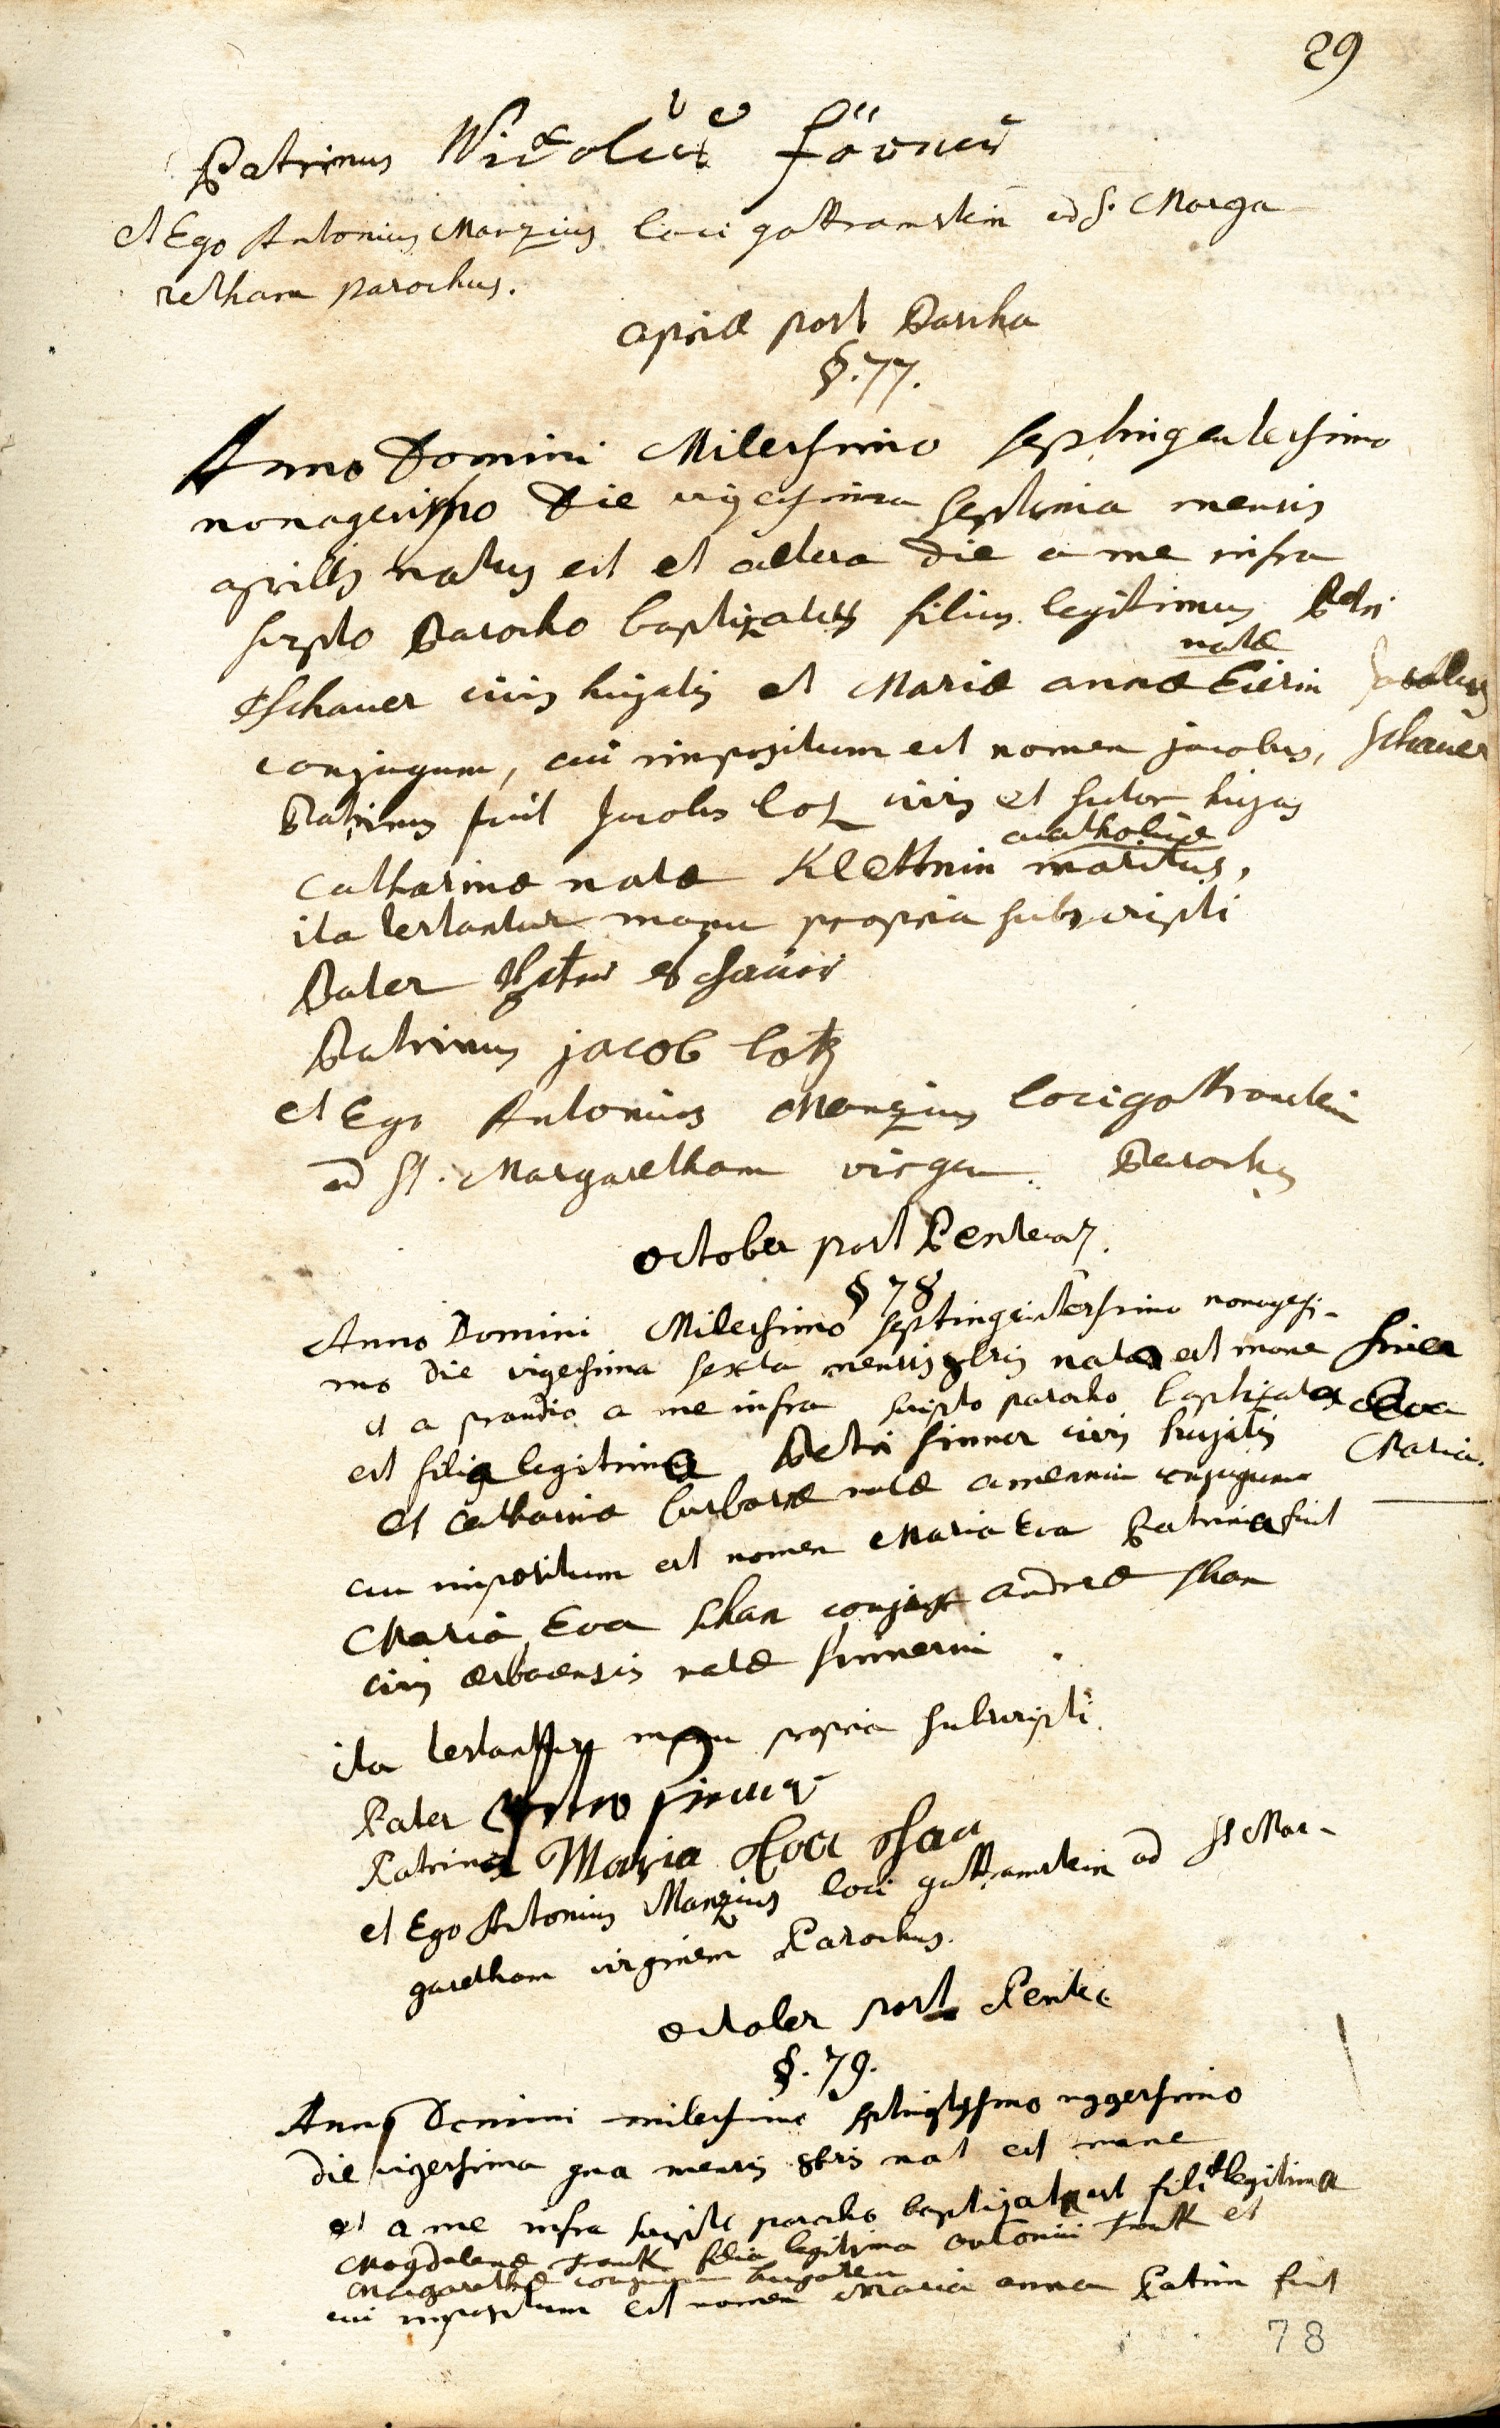 29
Patrinus Nicolaus
et Ego Antonius Manzius loci gattramstein ad S. Marga
retham parochus.
aprile post Pascha
§. 77.
Anno Domini Milessimo septingentesimo
nonagessimo Die vigesima septima mensis
aprills natus est et altera die a me infra
scripto Parocho baptizatus filius legitimus Petri
natæ
Tschauer civis hujatis et Mariæ annæ Eierin
Jacobus
conjugum, cui impositum est nomen jacobus,
schauer
Patrinus fuit Jacobus lotz civis et sutor hujas
acatholicæ
Catharinæ natæ Klettnin maritus,
ita testantur manu propria subscripti
Pater
Patrinus jacob lotz
et Ego Antonius Manzius loci gattramstein
ad St. Margaretham virgin. Parochus
october post Pentecos.
§ 78
Anno Domini Milessimo septingentessimo nonagesi-
mo die vigesima sexta mensis 8bris nata est mane
Sinner
et a prandio a me infra scripto parocho baptizata
Eva
est filia legitima Petri sinner civis hujatis
Maria.
et Catharinæ barbaræ natæ amennin conjugum
cui impositum est nomen Maria Eva Patrina fuit
Maria Eva schan conjux andreæ schan
civis natæ sinnerin
ita testantur manu propria subscripti.
Pater
Patrina Maria Eva
et Ego Antonius Manzius loci gattramstein ad St Mar-
garetham virginem Parochus.
october post Pente
§. 79.
Anno Domini milessimo
die vigessima mensis 8bris nat est mane
et a me infra scripto parocho baptizata est filia legitima
Magdalenæ Frank filia legitima Antonii Frank et
Margarethæ conjugum
cui impositum est nomen Maria anna Patrin fuit
78